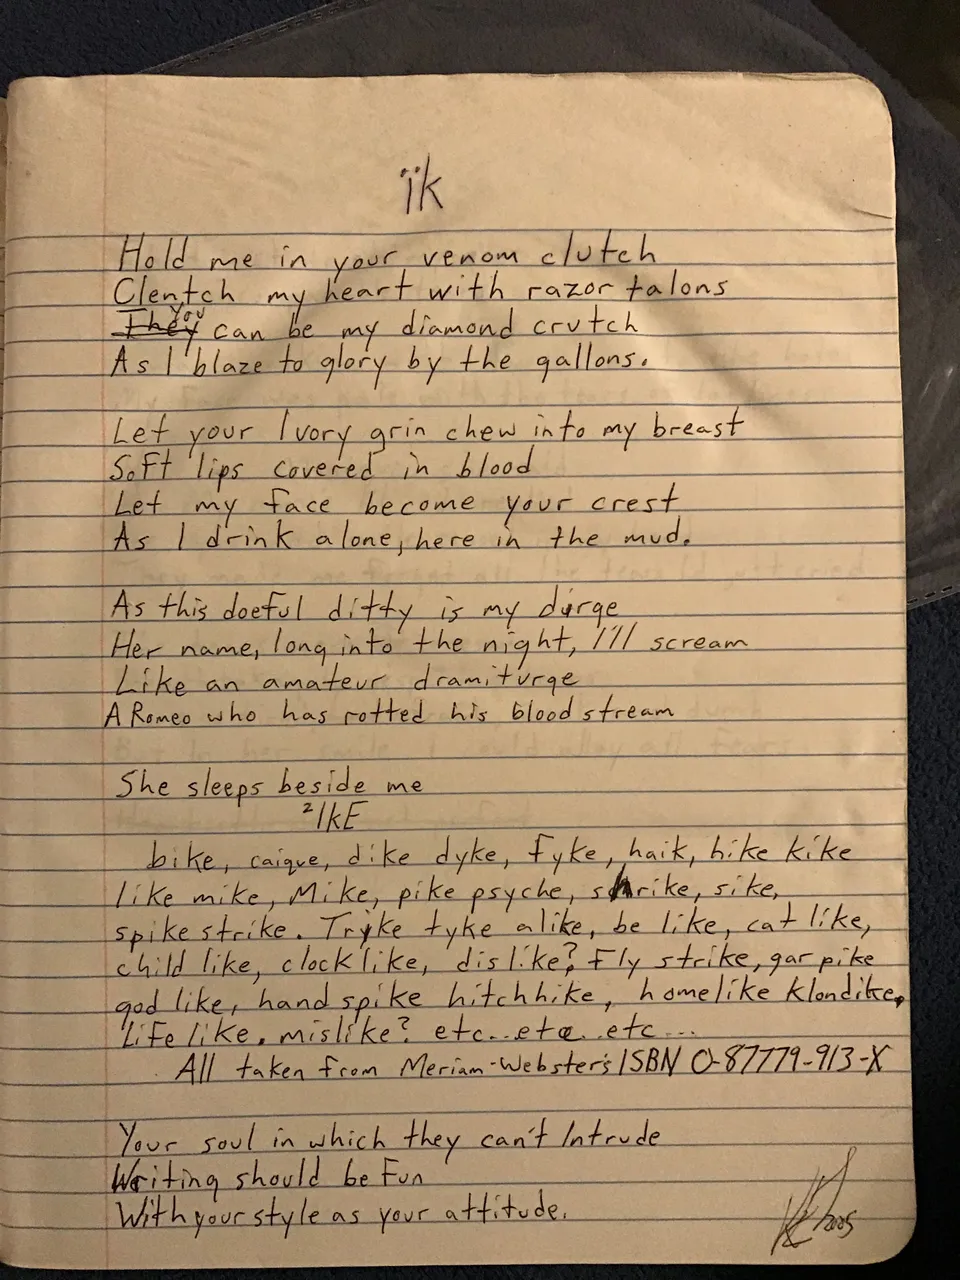 ïk
Hold me in your venom clutch
Clentch my heart with razor talons
They You can be my diamond crutch
As I blaze to glory by the gallons.
Let your Ivory grin chew into my breast
Soft lips covered in blood
Let my face become your crest
As I drink alone, here in the mud.
As this doeful ditty is my dirge
Her name, long into the night, I'll scream
Like an amateur dramiturge
A Romeo who has rotted his blood stream
She sleeps beside me
²IkE
bike, caique, dike dyke, Fyke, haik, hike kike
like mike, Mike, pike psyche, shrike, sike,
spike strike. Tryke tyke alike, be like, cat like,
child like, clock like, dislike? Fly strike, gar pike
god like, hand spike hitchhike, homelike klondike,
life like. mislike? etc...etc...etc...
All taken from Meriam-Webster's ISBN 0-87779-913-X
Your soul in which they can't Intrude
Writing should be Fun
With your style as your attitude.